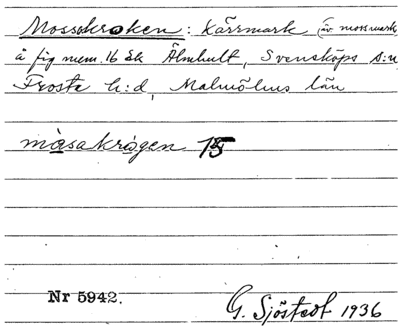 Mossakroken: Kärrmark (äv. mossmark)
å fig num. 16 Sk Älmhult, Svensköps s:n
Frosta h:d, Malmöhus län
måsakrågen
Nr 5942.
G. Sjöstedt 1936